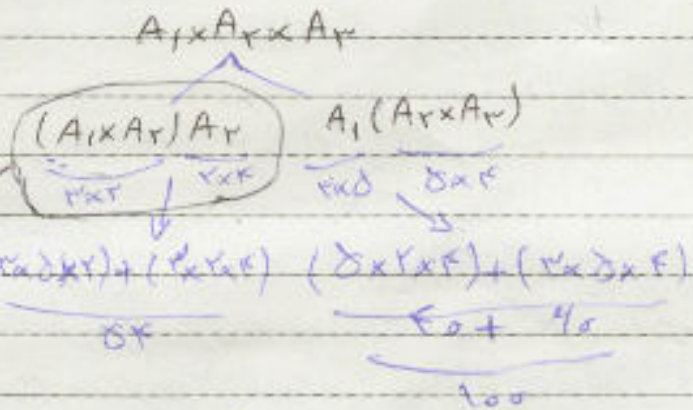 A₁×A₂×A₃
(A₁×A₂)A₃ A₁(A₂×A₃)
۳×۲ ۲×۴ ۳×۵ ۵×۴
۳×۵×۲)+(۳×۲×۴) (۵×۲×۴)+(۳×۵×۴)
۵۴ ۴۰+ ۶۰
۱۰۰